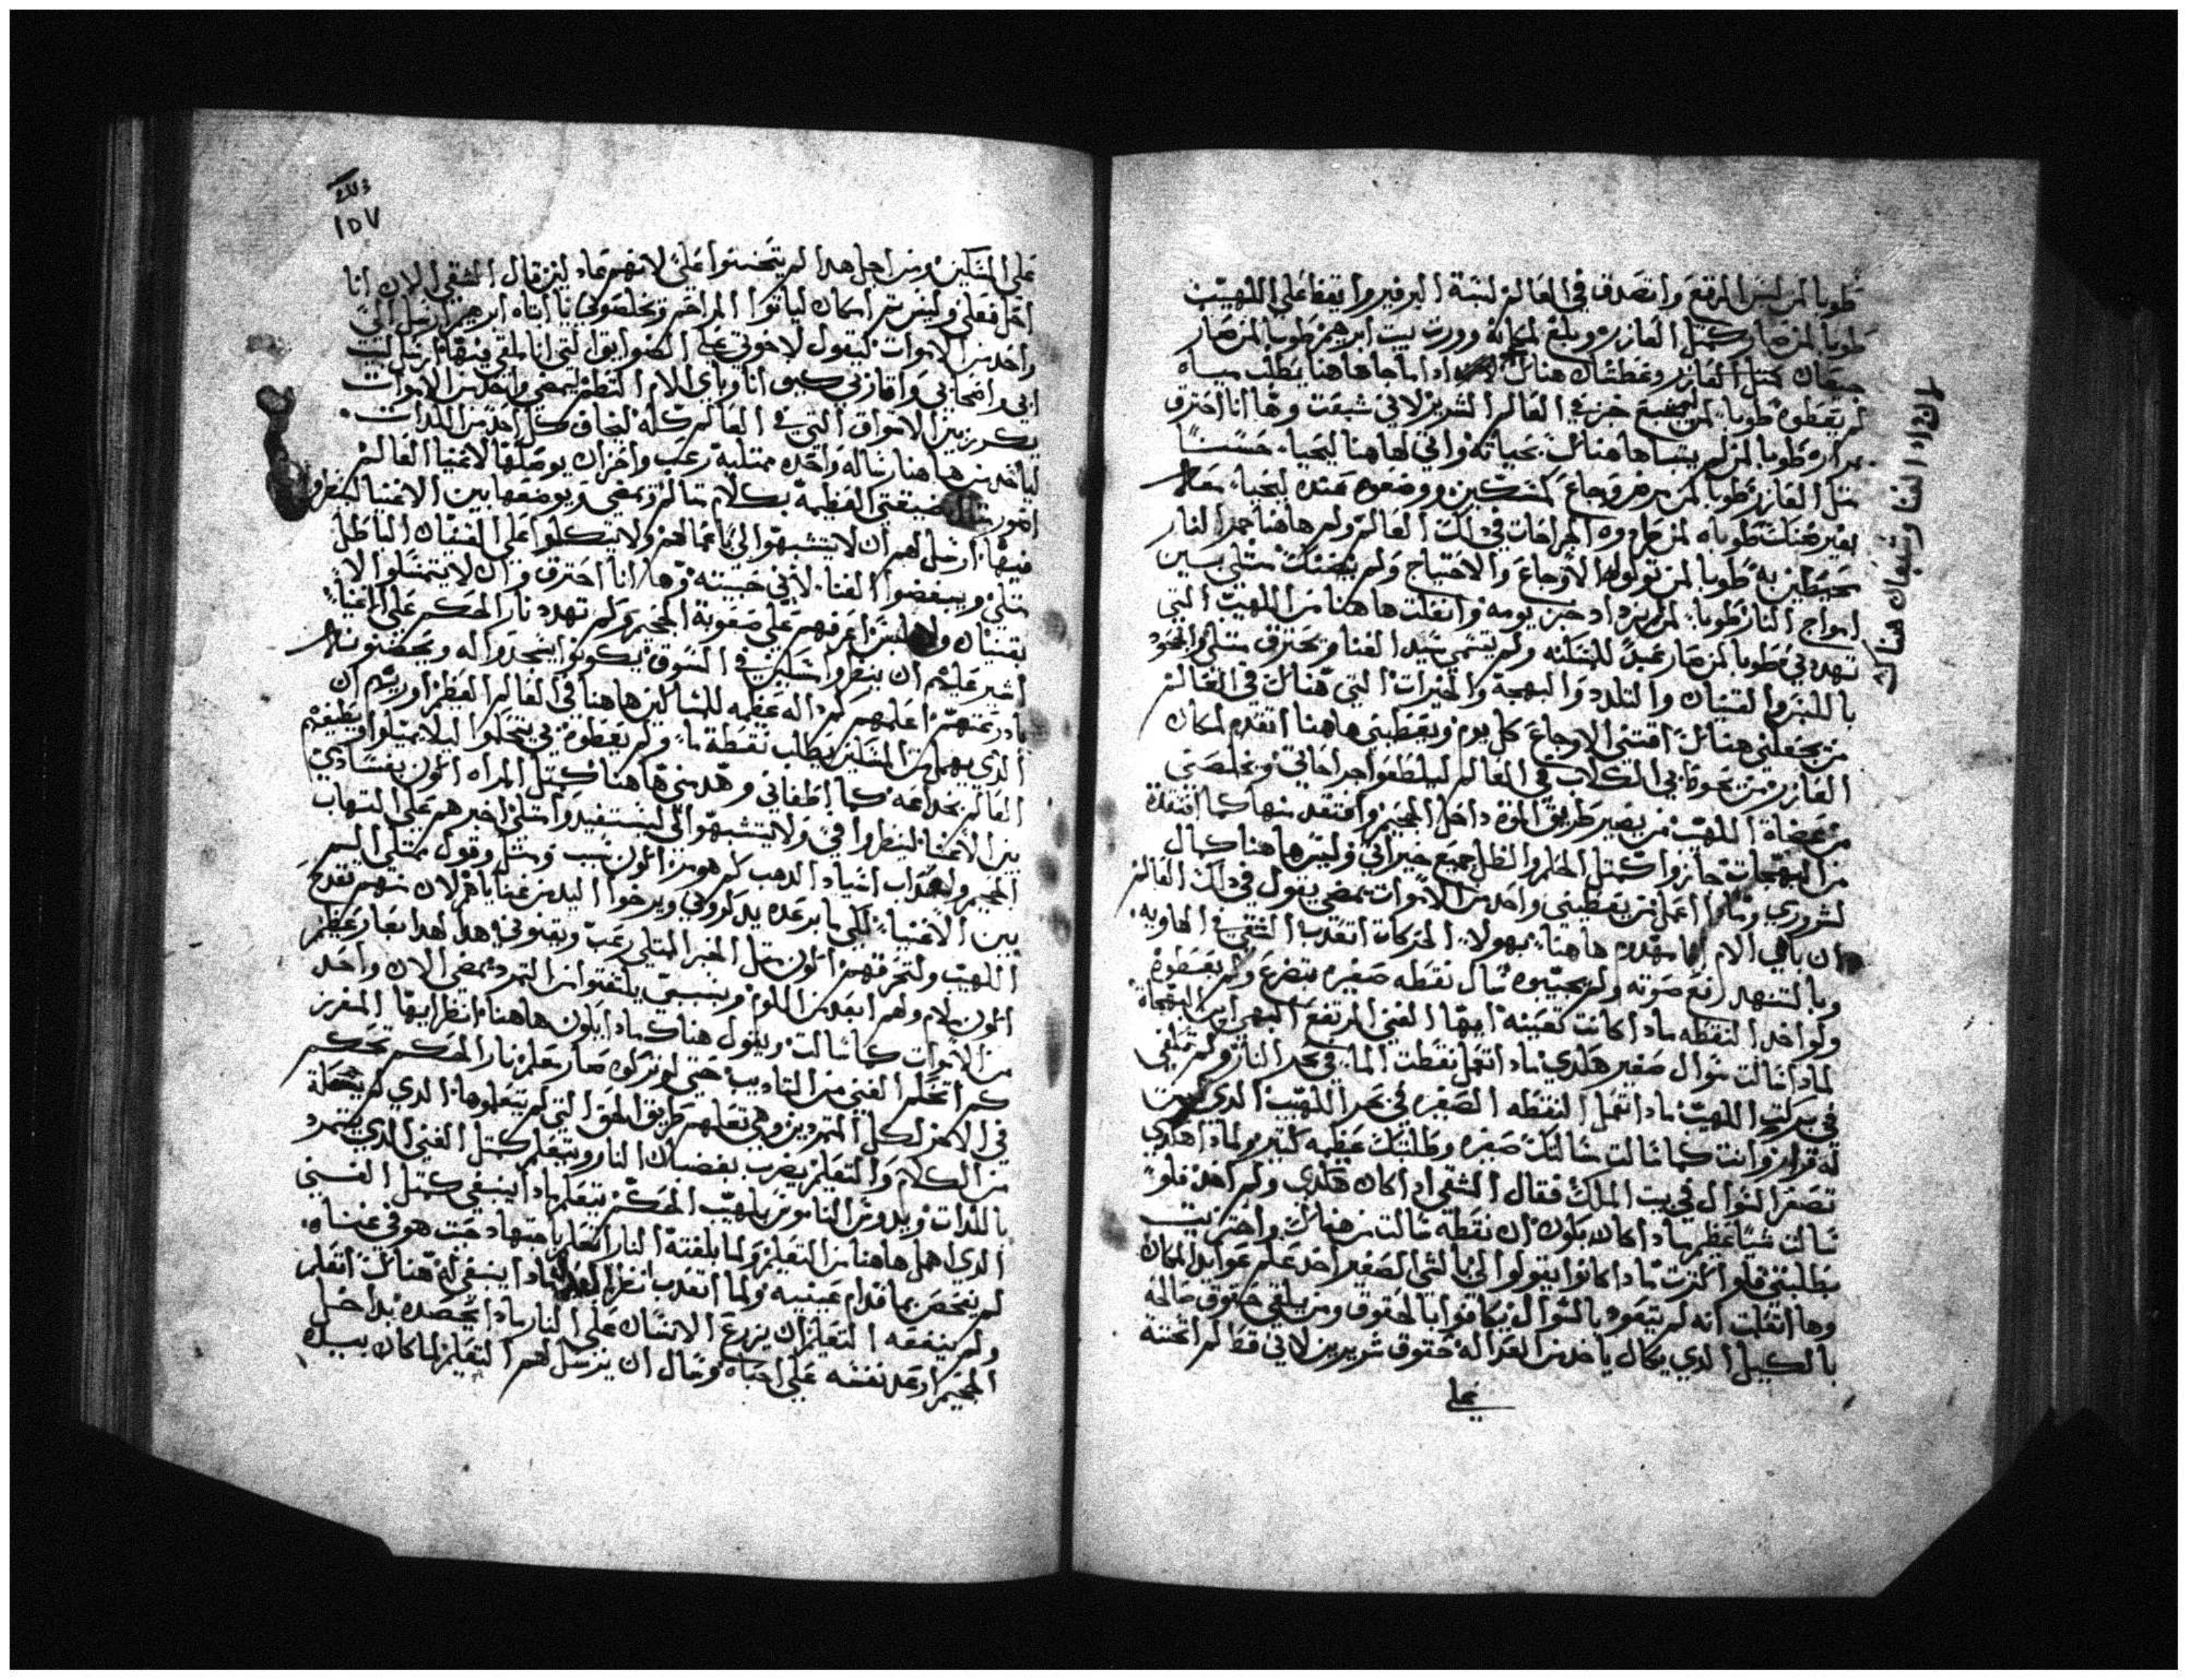 طوبا لمن لبس المرقع واتصدق في العالم لبسة البرفير واتعفا على اللهيب
طوبا لمن صار كمتل العازر وبلغ لمكانه وورت بيت ابرهيم طوبا لمن صار
جيعان كمتل العازر وعطشان هناك اداما جا هاهنا يطلب مياه
لم يعطوه طوبا لمن شبع خبز في العالم الشرير لاني شبعت وها انا احترق
بمراره طوبا لمن لم ينساها هنالك بحياته واتي لهاهنا ليحيا حسنا
متل العازر طوبا لمن مرض وجاع كمسكين ووضعوه عنده ليحيا معه
بغير هناك طوباه لمن حمل وه الجراحات في دلك العالم ولم هاهنا جمر النار
تحيطين به طوبا لمن تولوه الاوجاع والاحتياج ولم يضنك متلي بين
امواج النار طوبا لمن ازداد حزن يومه وانفلت هاهنا من اللهيب التي
تهدد في طوبا لمن صار عبد للمسكنه ولم يتسمى سيد الغنا ويحترق متلي والجود
باللبز والقتيات والتلدد والبهجة والخيرات التي هنالك في العالم
من يجعلني هنالك اقتني الاوجاع كل يوم ويعطيني هاهنا اتقدم لمكان
العازر من نحوة بي الكلاب في العالم ليلطعوا جراحاتي ونخلصني
من عضاة اللهيب من يصير طريق الموة داخل الجحيم وافتقد منها كما افتقدة
من البهجات جازوا كمتل الحلم والظل جميع خيراتي وليس هاهنا كمال
لشروري ومادا اعمل من يعطيني واحد من الاموات يمضي يقول في دلك العالم
ان باي الام انا مهدد هاهنا بهولا الحركات اتعدب الشقي في الهاويه
وبالتنهد رفع صوته ولم يجيبوه سال نقطه صغيره بتضرع ولم يعطوة
ولو اخد النقطه مادا كانت تعينه ايها الغني المرتفع البهي ابن البهجاة
لمادا سالت سوال صغير هكدي مادا تعمل نقطت الما في بحر النار ولم تطفي
في بركت اللهيب مادا تعمل النقطه الصغيره في بحر اللهيب الدي ليست
له قرار وانت كما سالت سالتك صغيره وطلبتك عظيمه كتير ولمادا هكدي
تصغر السوال في بيت الملك فقال الشقي ادا كان هكدي ولم اهد فلو
سالت شيا عظيم مادا كان يكون ان نقطة سالت من هنالك واختزيت
بطلبتي فلو اكترت مادا كانوا يقولوا لي بالشي الصغير احد علم عوايد المكان
وها انفلت انه لم يتعود بالسوال يكافوا بالحقوق ومن يلقي حقوق صالحه
بالكيل الدي يكال ياخد من العداله حقوق شريرين لاني قط لم اتحننة
على
لان زاد الغنا وشبعان هناك
١٥٧
على المساكين ومن اجل هدا لم يتحننوا علي لانهم عادلين قال الشقي الان انا
اخد فعلي وليس تم امكان لياتوا المراحم ويخلصوني يا ابتاه ابرهيم ارسل الي
واحد من الاموات ليقول لاخوتي على العواقب التي انا ملقى فيها ارسل لبيت
ابي واصحابي واقاربي كيف انا وباي الام التطم ليمضي واحد من الاموات
يكرز بين الاسواق التي في العالم كله ليخاف كل احد من اللدات
لياخد من هاهنا رساله واحده ممتليه رعب واحزان يوصلها لاغنيا العالم
امور ضيقتي العظيمة بكلام سالم ويمضي يوضعها بين الاغنيا لينظروا
فيها ارسل لهم ان لا يتشبهوا لي باعمالهم ولا يتكلوا على القنيان الباطل
متلي ويبغضوا الغنا لاني حبيته وها انا احترق وان لا يتمتلوا لا
بقنيان اعرفهم على صعوبة الجحيم وكم تهدد نار الحكم على الاغنيا
اشير عليهم ان ينظروا مساكين في السوق يكونوا يسجدوا له ويحضنونه
مادر عنهم اعلمهم كم داله عظيمه للمساكين هاهنا في العالم العظيم اوريهم ان
الدي يهمل من المساكين يطلب نقطة ما ولم يعطوة في يتحلموا ليلا يميلوا ويطيعهم
العالم بخداعه كما اطغاني وهدمني هاهنا كمتل المراه اكون بفسادي
بين الاغنيا لينظروا في ولا يتشبهوا الي ليستفيدوا متلي اخبرهم على التهاب
الجحيم ولعداب اشياد الدهب كم هو مر اكون سبب ومتل وقول ممتلي السر
بين الاغنيا لكي ما برعده يدكروني ويرخوا اليد من عناياهم لان منهم تقدح
اللهيب ولتحرقهم اكون متل الخبر الممتلي رعب ويقتنوني هدا لهدا بعار عظيم
اكون ملام ولهم ابعد من اللوم وبسببي يلتفتوا من التمرد يمضي الان واحد
من الاموات كما سالت ويقول هناك مادا يكون هاهنا انظر ايها المفرز
كم اتحلم الغني من التاديب حتى لو تركوه صار معلم نار الحكم تحكم
في الاخر لكل المتمردين وهي تعلمهم طريق الحق التي لم يتعلموها الدي لم يخجله
من الكلام والتعليم يضرب بقضبان النار ويتعلم كمتل الغني الدي يتمرد
باللدات ويلدوس الناموس باللهيب الحكم يتعلم مادا ينبغي كمتل الغني
الدي اهمل هاهنا من التعليم ولما بلغته النار اتعلم باجتهاد حيت هو في غناه
لم يفحص بما قدام عينيه ولما اتعدب انظر العدل مادا ينبغي له هنالك اتعلم
ولم ينفعه التعليم ان يزرع الانسان على النار مادا يحصده بداخل
الجحيم ارعد نفسه على احباه وسال ان يرسل لهم التعليم لما كان بيده